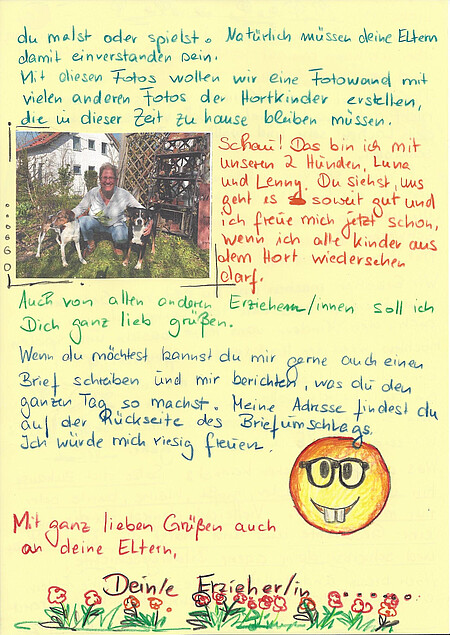 du malst oder spielst. Natürlich müssen deine Eltern
damit einverstanden sein.
Mit diesen Fotos wollen wir eine Fotowand mit
vielen anderen Fotos der Hortkinder erstellen,
die in dieser Zeit zu hause bleiben müssen.
Schau! Das bin ich mit
unseren 2 Hunden, Luna
und Lenny. Du siehst, uns
geht es soweit gut und
ich freue mich jetzt schon,
wenn ich alle Kinder aus
dem Hort wiedersehen
darf.
Auch von allen anderen Erziehern/innen soll ich
Dich ganz lieb grüßen.
Wenn du möchtest kannst du mir gerne auch einen
Brief schreiben und mir berichten, was du den
ganzen Tag so machst. Meine Adresse findest du
auf der Rückseite des Briefumschlags.
Ich würde mich riesig freuen.
Mit ganz lieben Grüßen auch
an deine Eltern,
Dein/e Erzieher/in ......